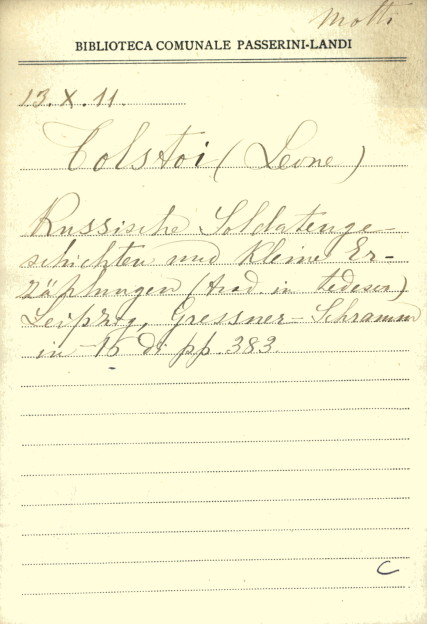 Motti
BIBLIOTECA COMUNALE PASSERINI-LANDI
13.X.11.
Tolstoi (Leone)
Russische Soldatenge-
schichten und Kleine Er-
zäplungen (Trad. in tedesco)
Leipzig, Gressner-Schramm
in -16 di pp. 383.
C